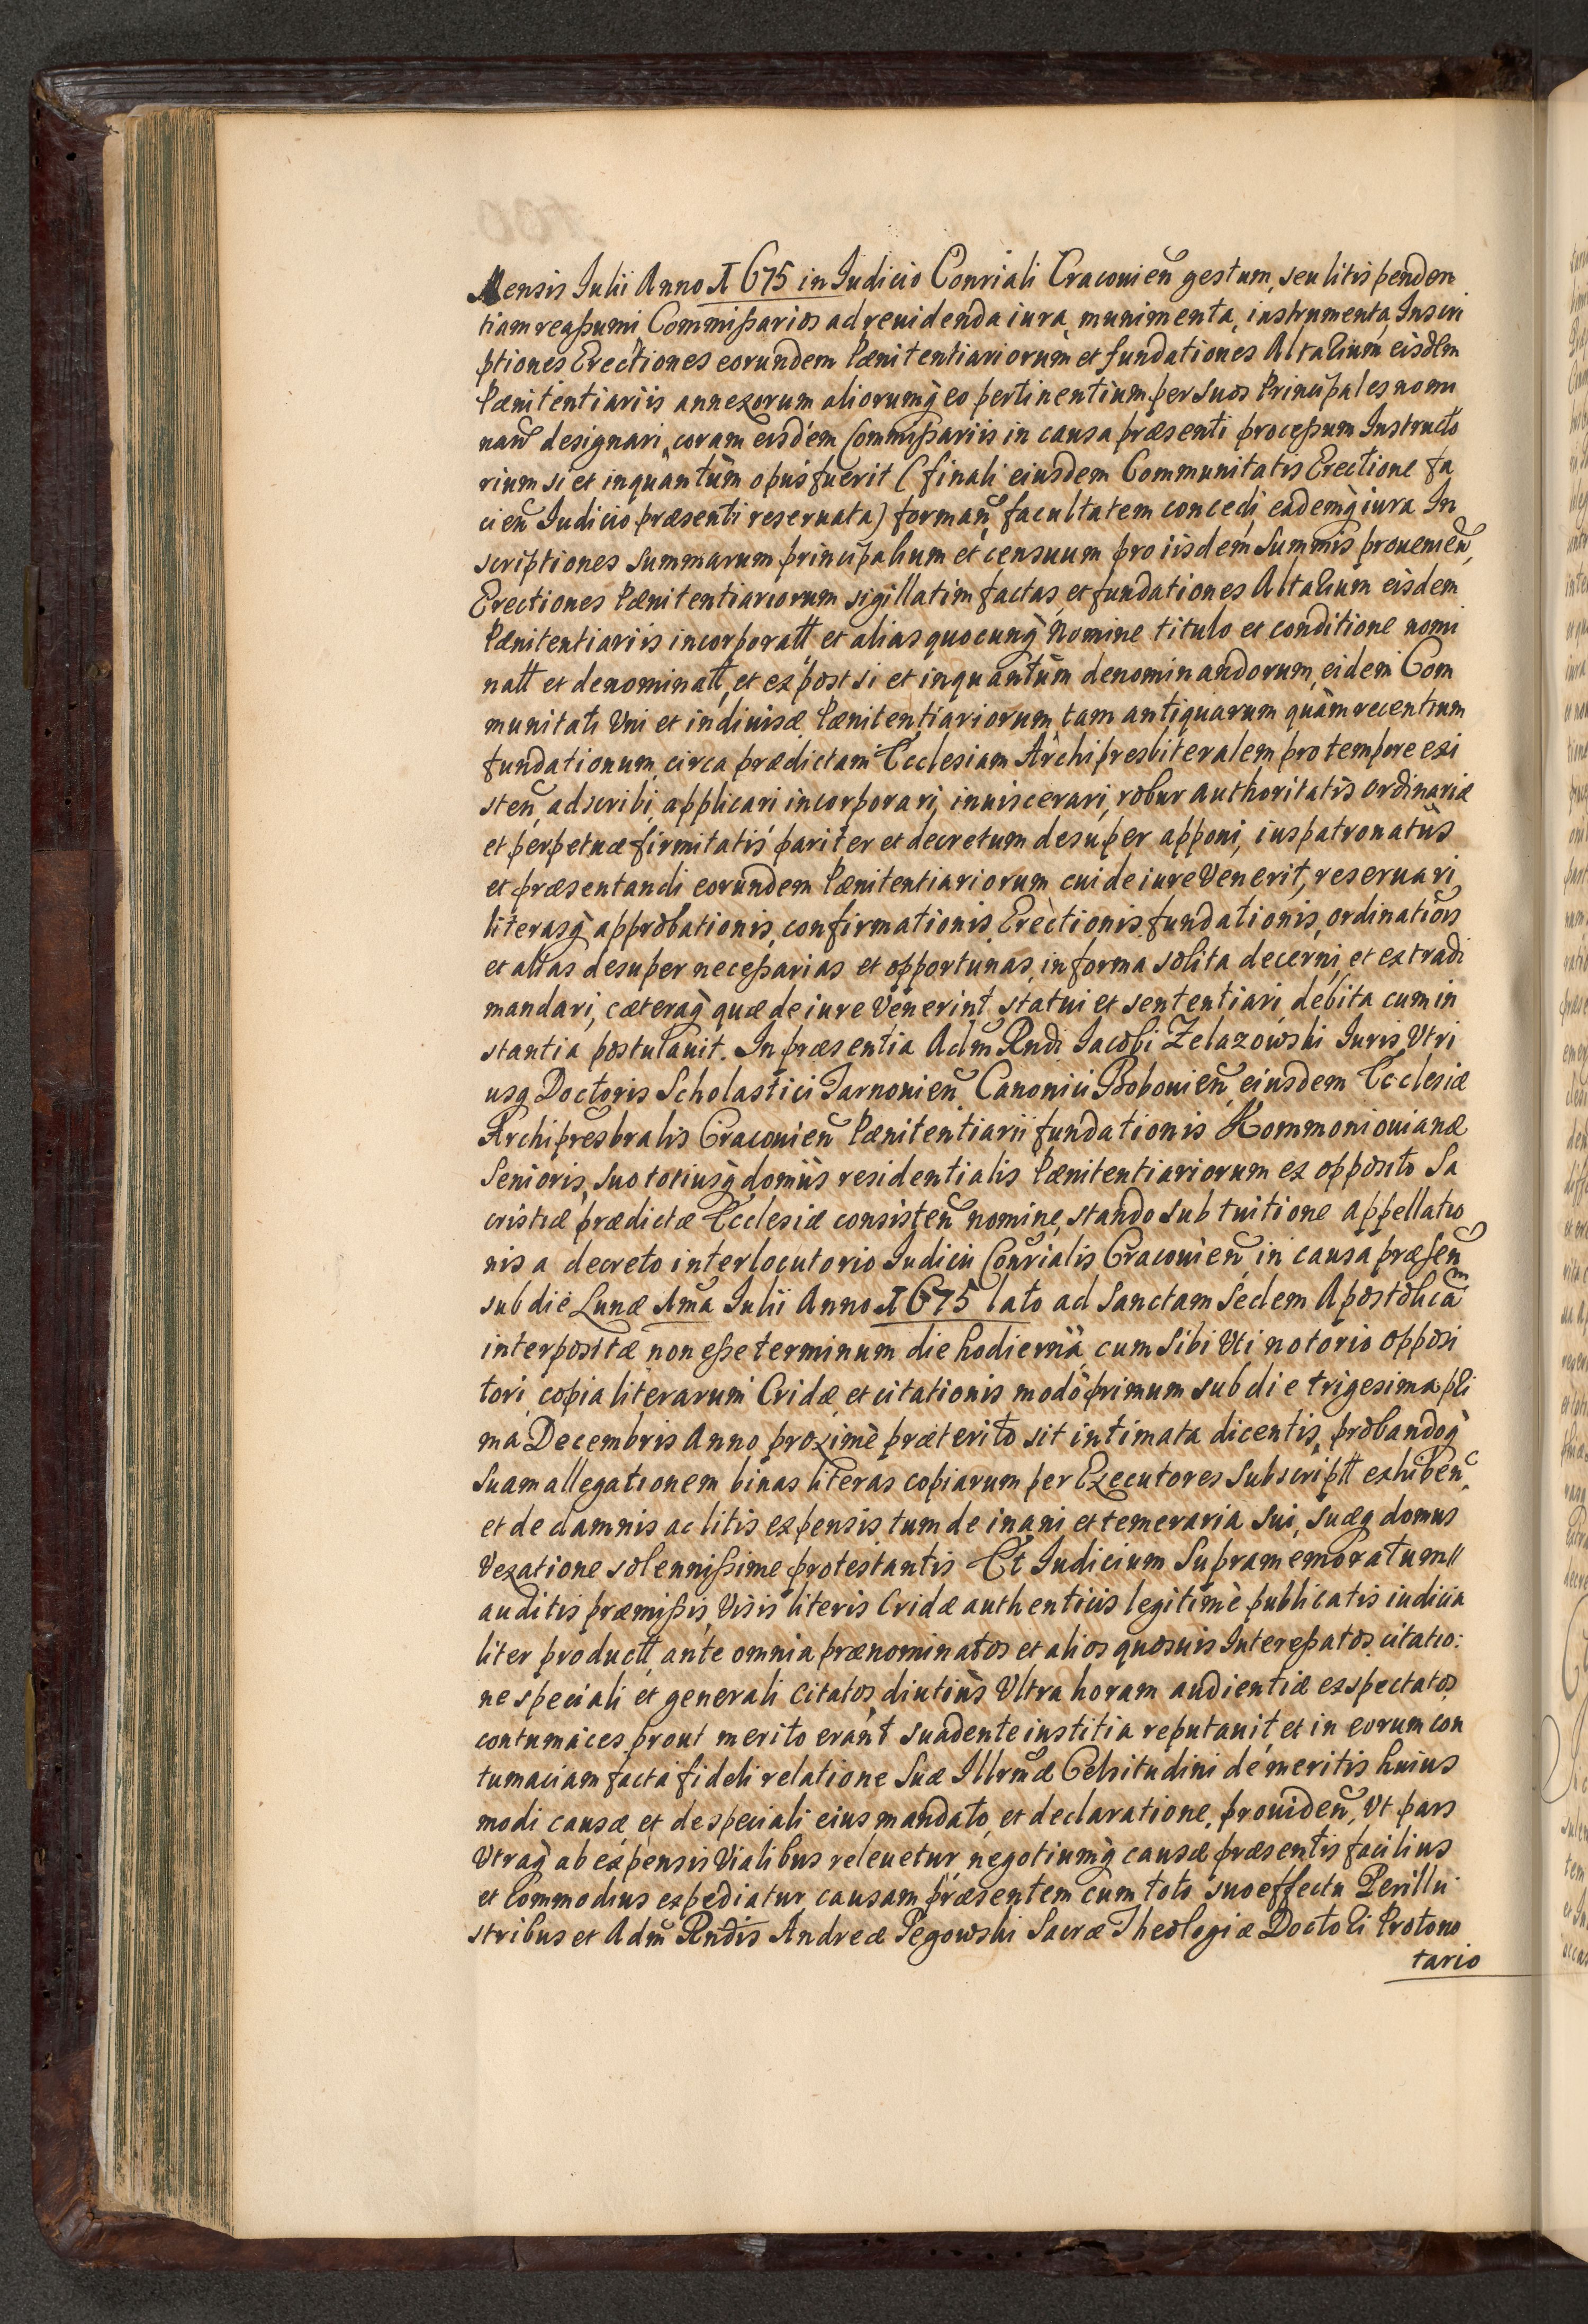 Mensis Iulii Anno 1675 in Iudicio Consiali Cracouien̄ gestum, seu litis penden
tiam reaßumi Commißarios ad reuidenda iura, munimenta, instrumenta, Inscri
ptiones Erectiones eorundem Pænitentiariorum et fundationes Altarium eisdem
Pænitentiariis annexorum aliorumq̀ eo pertinentium per suos Principales nomi
nan̄ designari, coram eisdem Commißariis in causa præsenti proceßum Instructo
rium si et inquantùm opus fuerit (finali eiusdem Communitatis Erectione fa
cien̄ Iudicio præsenti reseruata) forman̄, facultatem concedi, eademq̀ iura In
scriptiones summarum principalium et censuum pro iisdem Summis prouenien̄,
Erectiones Pænitentiariorum sigillatim factas, et fundationes Altarium eisdem
Pænitentiariis incorporatt, et alias quocunq̀ Nomine titulo et conditione nomi
natt et denominatt, et ex post si et inquantùm denominandorum, eidem Com
munitati Vni et indiuisæ Pænitentiariorum tam antiquarum quàm recentium
fundationum, circa prædictam Ecclesiam Archipresbiteralem pro tempore exi
sten̄, adscribi, applicari incorporari, inuiscerari, robur authoritatis ordinariæ
et perpetuæ firmitatis pariter et decretum desuper apponi, iuspatronatûs
et præsentandi eorundem Pænitentiariorum cui de iure Venerit, reseruari,
literasq̀ approbationis, confirmationis, Erectionis, fundationis, ordinatiōis
et alias desuper neceßarias et opportunas, in forma solita decerni, et extradi
mandari, cæteraq̀ quæ de iure Venerint statui et sententiari, debita cum in
stantia postulauit. In præsentia Adm̄ Rndi Iacobi Zelazowski Iuris Vtri
usq Doctoris Scholastici Tarnouien̄, Canonici Bobouien̄, eiusdem Ecclesiæ
Archipresbralis Cracouien̄ Pænitentiarii fundationis Kommoniouianæ
Senioris, suo totiusq̀ domûs residentialis Pænitentiariorum ex opposito Sa
cristiæ prædictæ Ecclesiæ consisten̄ nomine, stando sub tuitione appellatio
nis a decreto interlocutorio Iudicii Consialis Cracouien̄ in causa præsen̄
sub die Lunæ 1mā Iulii Anno 1675 lato ad Sanctam Sedem Apostolicam
interpositæ non eße terminum die hodierna, cum Sibi Vti notorio opposi
tori, copia literarum Cridæ et citationis modò primum sub die trigesima pri
ma Decembris Anno proximè præterito sit intimata dicentis, probandoq̀
Suam allegationem binas literas copiarum per Executores Subscriptt exhiben̄,
et de damnis ac litis expensis tum de inani et temeraria Sui, suæq domus
Vexatione solennißime protestantis Et Iudicium Supramemoratum
auditis præmißis, Visis literis Cridæ authenticis legitimè publicatis iudicia
liter productt, ante omnia prænominatos et alios quosuis Intereßatos citatio:
ne speciali et generali Citatos, diutiùs Vltra horam audientiæ exspectatos
contumaces prout merito erant suadente iustitia reputauit, et in eorum con
tumaciam facta fideli relatione Suæ Illrmæ Celsitudini de meritis huius
modi causæ et de speciali eius mandato, et declaratione, prouiden̄, Vt pars
Vtraq̀ ab expensis Vialibus releuetur, negotiumq̀ causæ præsentis facilius
et Commodius expediatur, causam præsentem cum toto suo effectu Perillu
stribus et Adm̄ Rndis Andreæ Pegowski Sacræ Theologiæ Doctori Protono
tario